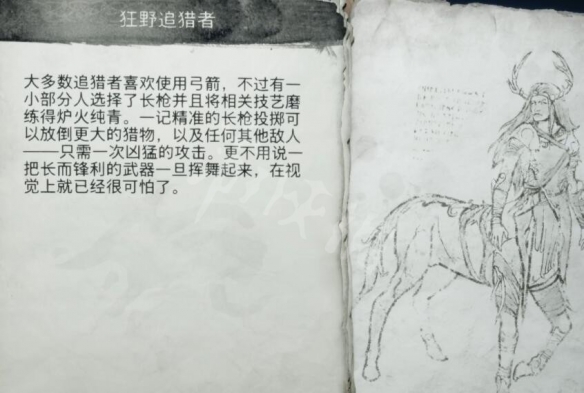 狂野追猎者
大多数追猎者喜欢使用弓箭，不过有一
小部分人选择了长枪并且将相关技艺磨
练得炉火纯青。一记精准的长枪投掷可
以放倒更大的猎物，以及任何其他敌人
——只需一次凶猛的攻击。更不用说一
把长而锋利的武器一旦挥舞起来，在视
觉上就已经很可怕了。